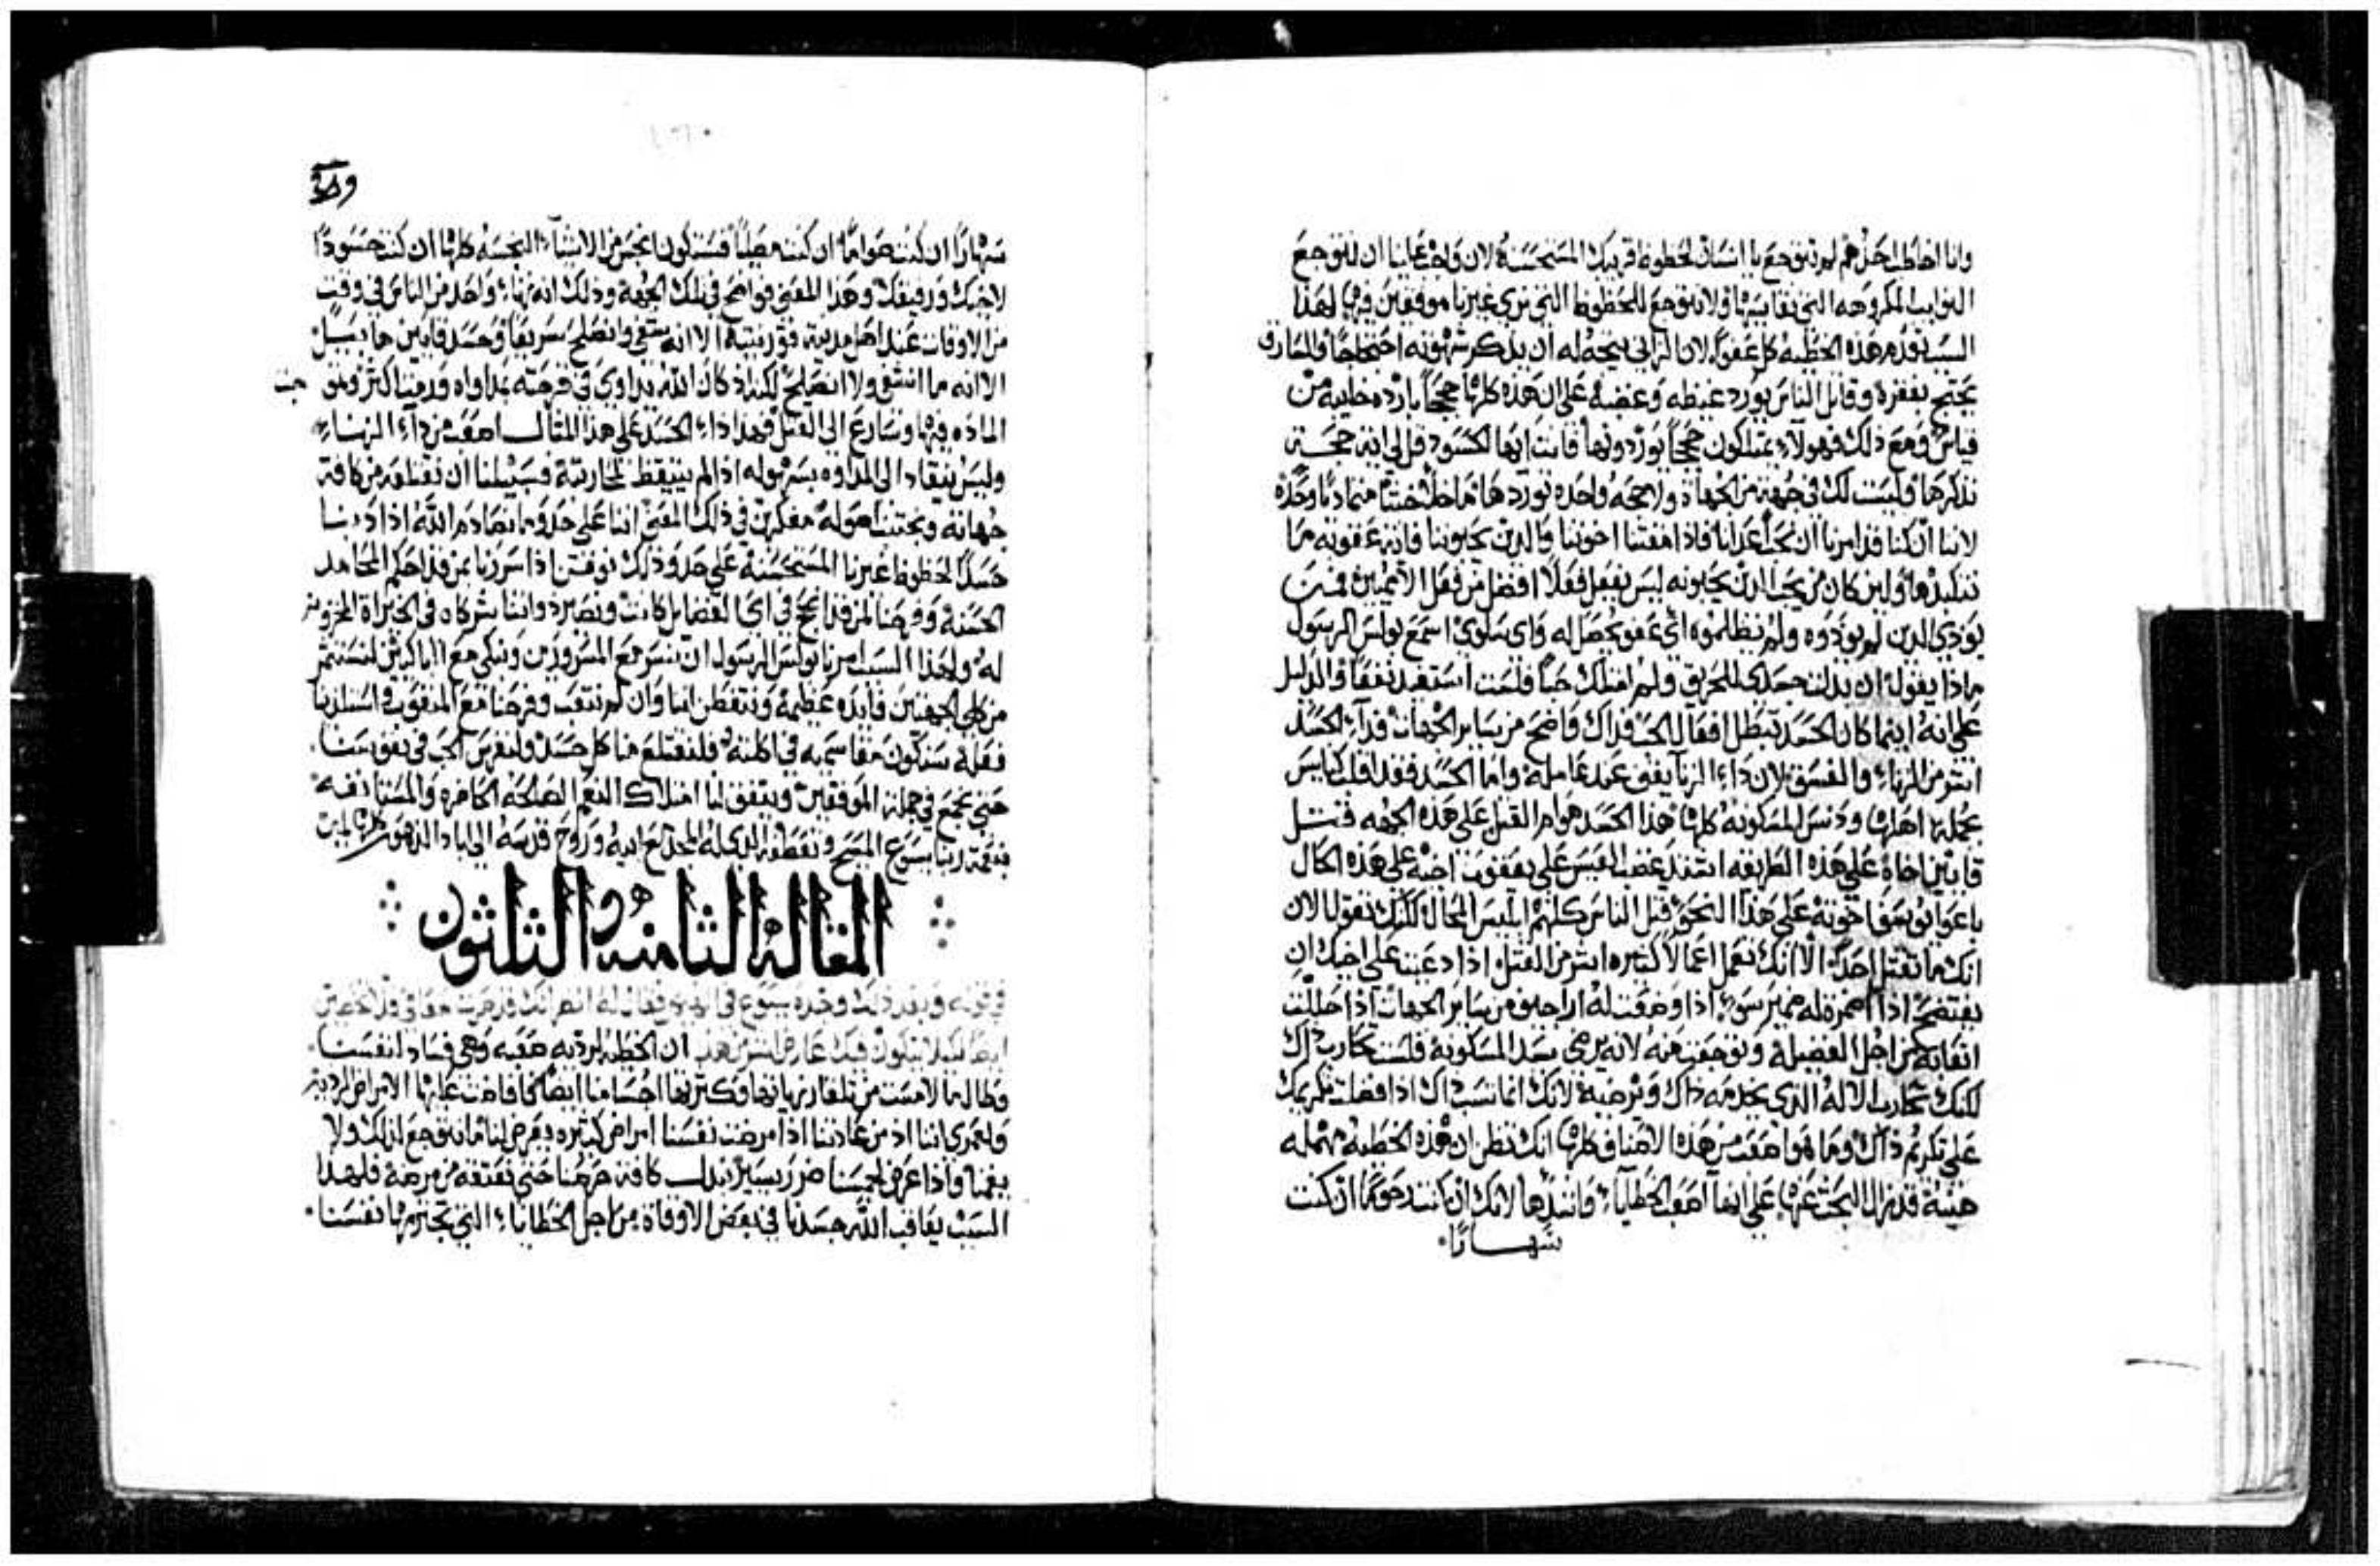 وانا اخاطب احدهم لم تتوجع يا انسان لحظوظ قريبك المستحسنة لان واجب علينا ان نتوجع
النوايب المكروهه التي نقاسيها ولا نتوجع للحظوظ التي نري غيرنا موفقين فيها لهذا
السبب تعدم هذه الخطيه كل عفوًا لان الزاني يتجه له ان يذكر شهوته احتجاجًا والسارق
يحتج بفقره وقاتل الناس يورد غيظه وغضبه علي ان هذه كلها حججًا بارده خايبه من
قياس ومع ذلك فهولاء يمتلكون حججًا يوردونها فانت ايها الحسود قل لي اية حجة
تذكرها وليست لك في جهة من الجهاة ولا حجه واحده توردها ما خلا خبثًا متماديًا وحده
لاننا ان كنا قد امرنا ان نحب اعدانا فاذا مقتنا اخوتنا والذين يحبوننا فاية عقوبه ما
نتكبدها ولين كان من يحب الذين يحبونه ليس يفعل فعلاً افضل من فعل الامميين فمن
يوذي الذين لم يوذوه ولم يظلموه اي عفو يحصل له واي سلوي اسمع بولس الرسول
ماذا يقول ان بذلت جسدي للحريق ولم امتلك حبًا فلست استفيد نفعًا والدليل
علي انه اينما كان الحسد تبطل افعال الحب فذاك واضح من ساير الجهات فداء الحسد
اشر من الزناء والفسق لان داء الزنا يقف عند عامله واما الحسد فقد اقلب كنايس
بجملتها اهلها ودنس المسكونه كلها هذا الحسد هو ام القتل علي هذه الجهه قتل
قايين اخاه علي هذه الطريقه استفد غضب العيس علي يعقوب اخيه علي هذه الحال
باعوا يوسف اخوته علي هذا النحو قتل الناس كلهم ابليس المحال لكنك تقول الان
انك ما تقتل احدًا الا انك تعمل اعمالاً كثيره اشر من القتل اذا دعيت علي اخيك ان
يفتضح اذا اضمرة له ضمير سوء اذا وضعت له اراجيف من ساير الجهات اذا حللت
اتعابه من اجل الفضيله وتوجعت منه لانه يرضي سيد المسكونه فلست تحارب ذاك
لكنك تحارب الاله الذي يخدمه ذاك وترضيه لانك انما تسب ذاك اذا فضلت تكريمك
علي تكريم ذاك وما هو اصعب من هذا الاصناف كلها انك تظن ان هذه الخطيه مهمله
هينة قد نزل البحث عنها علي انها اصعب الخطايا واشدها لانك ان كنت رحومًا ان كنت
شهارًا
سهارًا ان كنت صوامًا ان كنت مصليًا فستكون انجس من الاشياء النجسه كلها ان كنت حسودًا
لاخيك ورفيقك وهذا المعني فواضح في تلك الجهة وذلك انه زنا واحد من الناس في وقت
من الاوقات عند اهل مدينة قورنثية الا انه شفي وانصلح سريعًا وحسد قايين هابيل
الا انه ما انشفي ولا انصلح لكن اذ كان الله يداوي في قرحته بدواه ورمت اكثر ونمت
الماده فيها وسارع الي القتل فهذا داء الحسد علي هذا المثال اصعب من داء الزناء
وليس ينقاد الي المداوه بسهوله اذا لم يتيقظ لمحاربتة فسبيلنا ان نقتلعه من كافة
جهاتة ونجتث اصوله مفكرين في ذلك المعني اننا علي حذو ما نصادم الله اذا دبنا
حسدًا لحظوظ غيرنا المستحسنة علي حذو ذلك نوفقن اذا سررنا بمن قد احكم المحامد
الحسنة وفرحنا لمن قد نجح في اي الفضايل كانت ونصير ذواتنا شركاه في الخيراة المخزونة
له ولهذا السبب امرنا بولس الرسول ان نسر مع المسرورين ونبكي مع الباكيين لنستثمر
من كلي الجهتين فايده عظيمة ونتفطن اننا وان لم نتعب وفرحنا مع المتعوب واستلذينا
فعله سنكون مقاسميه في اكلته فلنقتلع منا كل حسد ولنغرس الحب في نفوسنا
حتي نجمع في جملة الموفقين ويتفق لنا امتلاك النعم الصالحة الحاضره والمستانفه
بنعمة ربنا يسوع المسيح وتعطفه الذي له المجد مع ابيه وروح قدسه الي اباد الدهور كلها امين
المقاله الثامنه والثلثون
ان الخطيه لرديه صعبه وهي فساد انفسنا
وطال ما لامست من تلقا زنهايتها وكثرتها اجسامنا ايضًا كما فاضت عليها الامراض الرديه
ولعمري اننا اذ من عادتنا اذا مرضت نفسنا امراض كثيره يعرض لنا ما نتوجع لذلك ولا
يغمنا واذا عرض لجسمنا ضرر يسير نبذل كافة حرصنا حتي نعتقه من مرضه فلهذا
السبب يعاقب الله جسدنا في بعض الاوقاة من اجل الخطايا التي تجترمها نفسنا